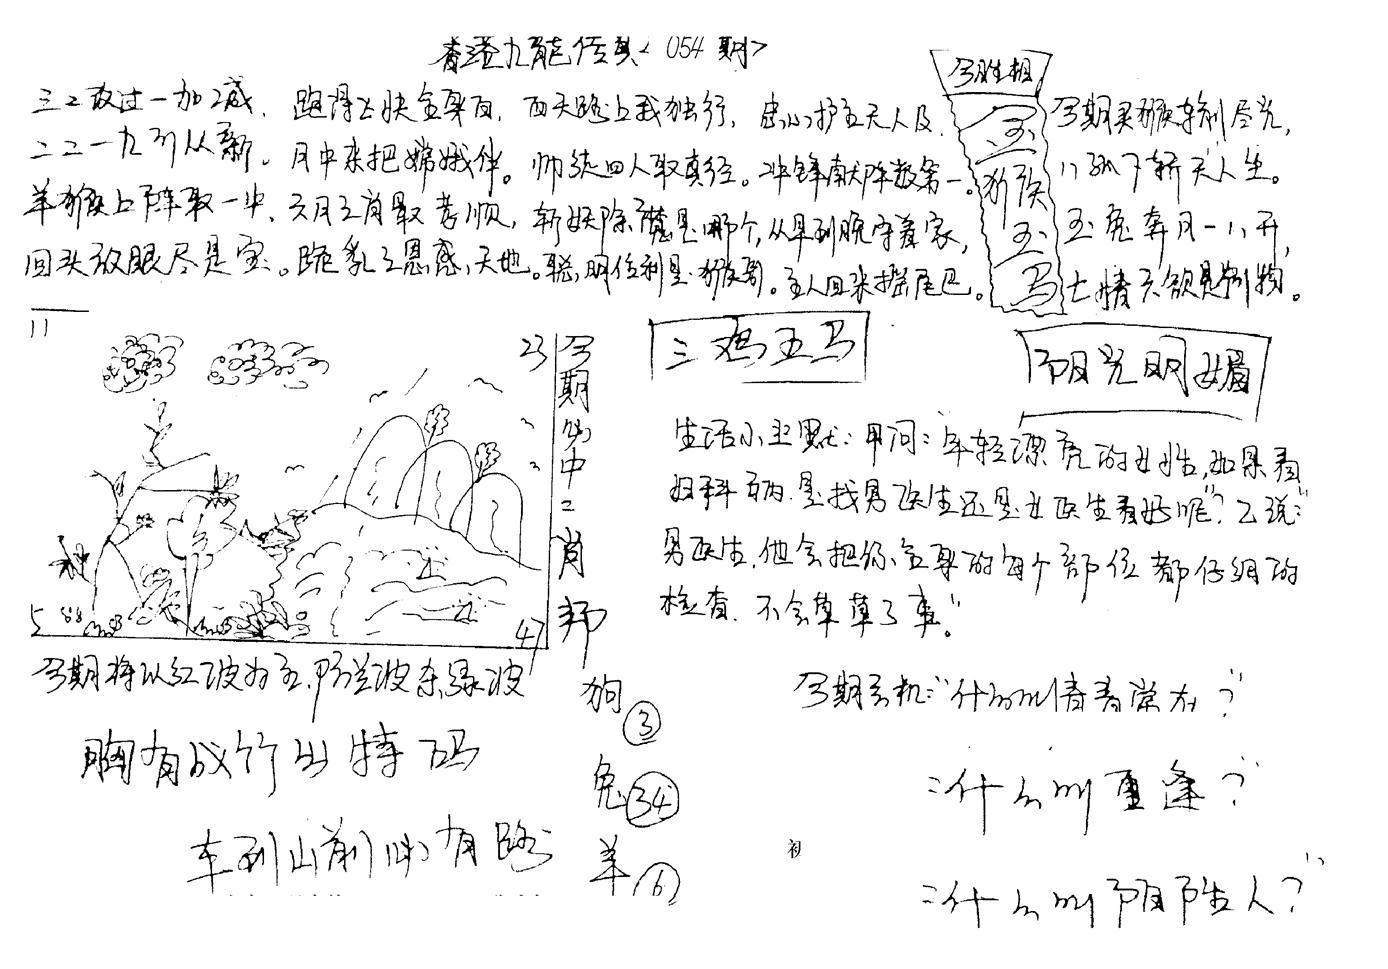 香港九龙传真<054期>
三二数过一加减、跑得飞快全身白，西天路上我独行，忠心护主无人及、
二二一九引从新。月中来把嫦娥伴。师徒四人取真经。冲锋献阵数第一。
羊猴上阵取一中、三月之肖最苦顺，斩妖除魔是哪个，从早到晚守着家，
回头放眼尽是宝。跪乳之恩感天地。聪明伶利是猴哥。主人回来摇尾巴。
今胜相
玉猴玉马
今期买猴转别尽光，
玉兔奔月一八开，
11
23
5
47
今期必中二肖
狗③
兔㉞
羊⑥
三鸡五马
阳光明媚
生活小幽默：甲问：年轻漂亮的女性，如果看
妇科病.是找男医生还是女医生看好呢？"乙说："
男医生，他会把你全身的每个部位都仔细的
检查.不会草草了事"。
今期将以红波为主，防兰波杀绿波
胸有成竹出特码
车到山前必有路
今期玄机："什么叫青春常在？"
：什么叫重逢？"
：什么叫阳陆人？"
初